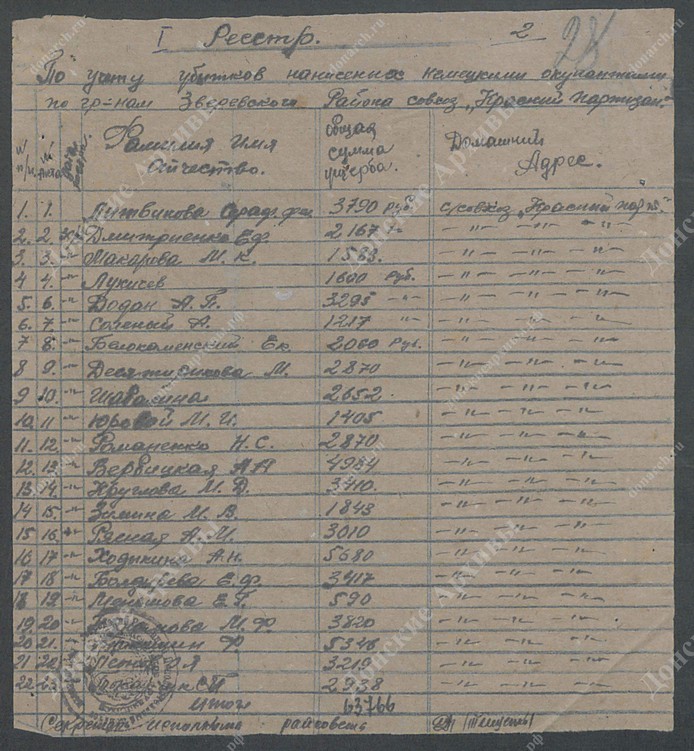 I Реестр. 2 28
По учету убытков нанисенных немецкими окупантами
по гр-нам Зверевского Района совхоз „Красний партизан"
№ п/п № акта Фамилия Имя Отчество. Общая сумма ущерба. Домашний Адрес.
1. 1. Литвикова 3790 руб. с/совхоз „Красний парт."
2. 2. Дмитриенко Е.Ф. 2167 -"- -"- -"- -"-
3. 3. -"- Макарова М. К. 1563. -"- -"- -"-
4 4. -"- Лукичев 1600 руб. -"- -"- -"-
5. 6. -"- Додан А. П. 3295 -"- -"- -"- -"-
6. 7. -"- Соленый А. 1217 -"- -"- -"- -"-
7 8. -"- Белокаменский Ек. 2060 руб. -"- -"- -"-
8 9. -"- М. 2870 -"- -"- -"-
9 10. -"- Шаволина 2652. -"- -"- -"-
10. 11 -"- Юровой М. И. 1405 -"- -"- -"-
11. 12. -"- Романенко Н. С. 2870 -"- -"- -"-
12. 13. -"- Вербицкая 4954 -"- -"- -"-
13. 14. -"- Круглова М. Д. 3410. -"- -"- -"-
14 15. -"- Зимина М. В. 1843 -"- -"- -"-
15 16. Ряская А. М. 3010 -"- -"- -"-
16 17 -"- Ходыкина А. Н. 5680 -"- -"- -"-
17 18 -"- Болдырева Е. Ф. 3417 -"- -"- -"-
18 19. -"- Меньшова Е. Г. 590 -"- -"- -"-
19. 20 -"- М. Ф. 3820 -"- -"- -"-
20 21. Ф 5346 -"- -"- -"-
21 22. 3219 -"- -"- -"-
22. 23. 2938 -"- -"- -"-
Итого 63766
Секретарь исполкома райсовета
Донские Архивы
donarch.ru